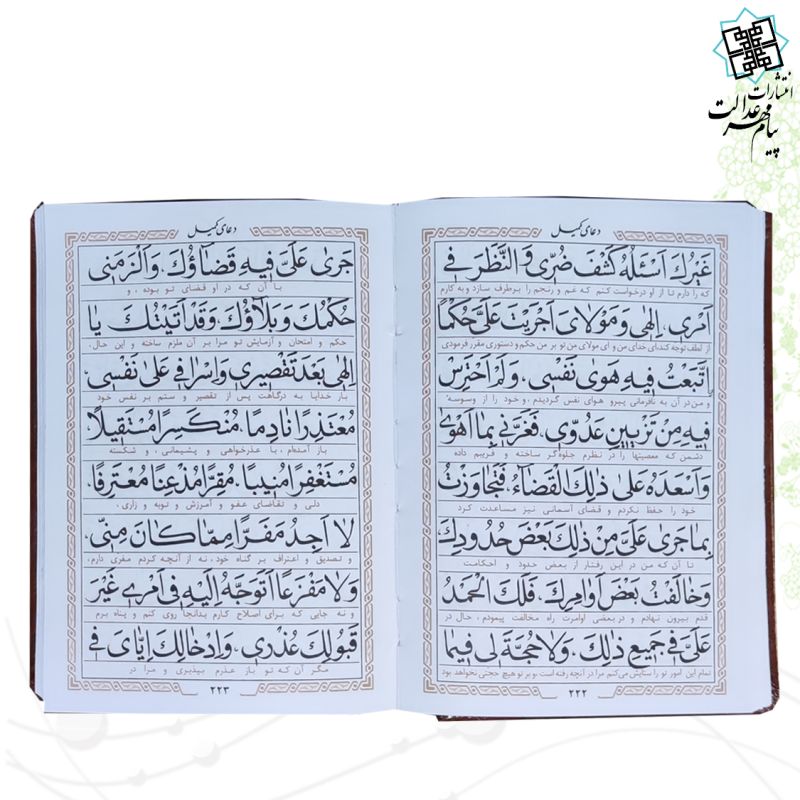 انتشارات
پیام مهر عدالت
دعای کمیل
غَيْرُكَ اَسْئَلُهُ كَشْفَ ضُرّى وَالنَّظَرَ فى
که را دارم تا از او درخواست کنم که غم و رنجم را برطرف سازد و به کارم
اَمْرى، اِلهى وَمَوْلاىَ اَجْرَيْتَ عَلَىَّ حُكْمًا
از لطف توجه کند ای خدای من و ای مولای من تو بر من حکم و دستوری مقرر فرمودی
اِتَّبَعْتُ فيهِ هَوى نَفْسى، وَلَمْ اَحْتَرِسْ
و من در آن به نافرمانی پیرو هوای نفس گردیدم، و خود را از وسوسه
فيهِ مِنْ تَزْيينِ عَدُوّى، فَغَرَّنى بِما اَهْوى
دشمن که معصیتها را در نظرم جلوه‌گر ساخته و فریبم داده
وَاَسْعَدَهُ عَلى ذلِكَ الْقَضآءُ، فَتَجاوَزْتُ
خود را حفظ نکردم و قضای آسمانی نیز مساعدت کرد
بِما جَرى عَلَىَّ مِنْ ذلِكَ بَعْضَ حُدُودِكَ
تا آن که من در این رفتار از بعض حدود و احکامت
وَخالَفْتُ بَعْضَ اَوامِرِكَ، فَلَكَ الْحَمْدُ
قدم بیرون نهادم و در بعضی اوامرت راه مخالفت پیمودم، حال در
عَلَىَّ فى جَميعِ ذلِكَ، وَلا حُجَّةَ لى فيما
تمام این امور تو را ستایش می‌کنم مرا در آنچه رفته است، و بر تو هیچ حجتی نخواهد بود
۲۲۲
دعای کمیل
جَرى عَلَىَّ فيهِ قَضآؤُكَ، وَاَلْزَمَنى
با آن که در او قضای تو بوده، و
حُكْمُكَ وَبَلآؤُكَ وَقَدْ اَتَيْتُكَ يا
حکم و امتحان و آزمایش تو مرا بر آن ملزم ساخته و این حال،
اِلهى بَعْدَ تَقْصيرى وَاِسْرافى عَلى نَفْسى،
بار خدایا به درگاهت پس از تقصیر و ستم بر نفس خود
مُعْتَذِرًا نادِمًا، مُنْكَسِرًا مُسْتَقيلاً،
باز آمده‌ام، با عذرخواهی و پشیمانی، و شکسته
مُسْتَغْفِرًا مُنيبًا، مُقِرًّا مُذْعِنًا مُعْتَرِفًا،
دلی و تقاضای عفو و آمرزش و توبه و زاری،
لا اَجِدُ مَفَرًّا مِمّا كانَ مِنّى،
و تصدیق و اعتراف بر گناه خود، نه از آنچه کردم مفری دارم،
وَلا مَفْزَعًا اَتَوَجَّهُ اِلَيْهِ فى اَمْرى غَيْرَ
و نه جایی که برای اصلاح کارم بدانجا روی کنم و پناه برم
قَبُولِكَ عُذْرى، وَاِدْخالِكَ اِيّاىَ فى
مگر آن که تو باز عذرم بپذیری و مرا در
۲۲۳